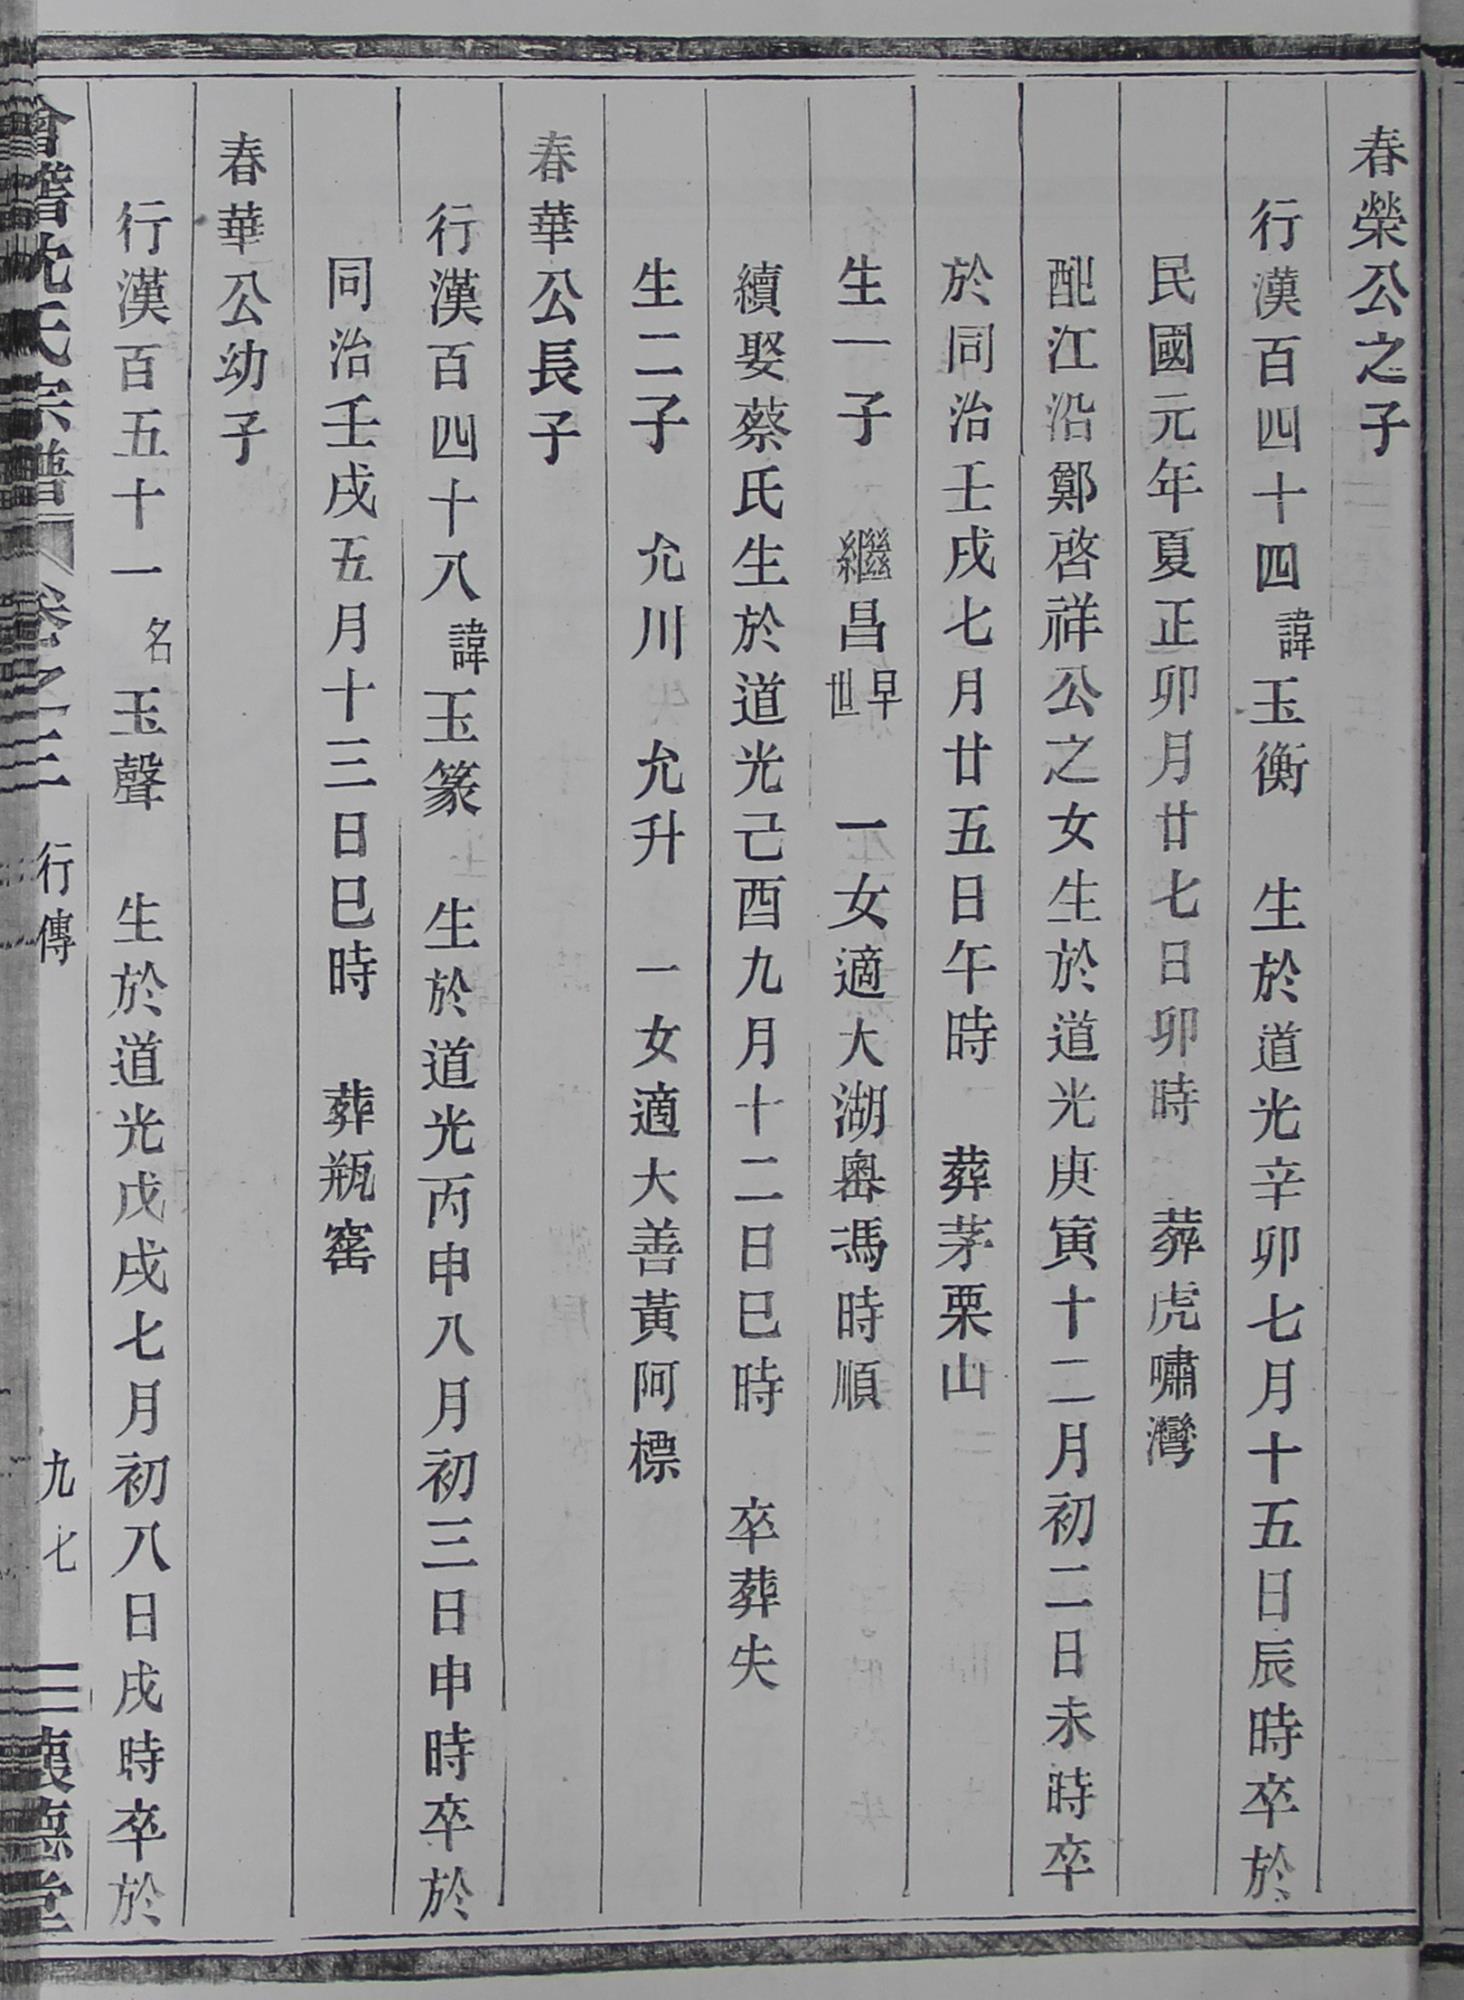 春榮公之子
行漢百四十四諱玉衡　生於道光辛卯七月十五日辰時卒於
民國元年夏正卯月廿七日卯時　葬虎嘯灣
配江沿鄭啓祥公之女生於道光庚寅十二月初二日未時卒
於同治壬戌七月廿五日午時　葬茅栗山
生一子　繼昌早世　一女適大湖嶴馮時順
續娶蔡氏生於道光己酉九月十二日巳時　卒葬失
生二子　允川　允升　一女適大善黃阿標
春華公長子
行漢百四十八諱玉篆　生於道光丙申八月初三日申時卒於
同治壬戌五月十三日巳時　葬瓶窰
春華公幼子
行漢百五十一名玉聲　生於道光戊戌七月初八日戌時卒於
會稽沈氏宗譜　卷之三　行傳　九七　懷德堂